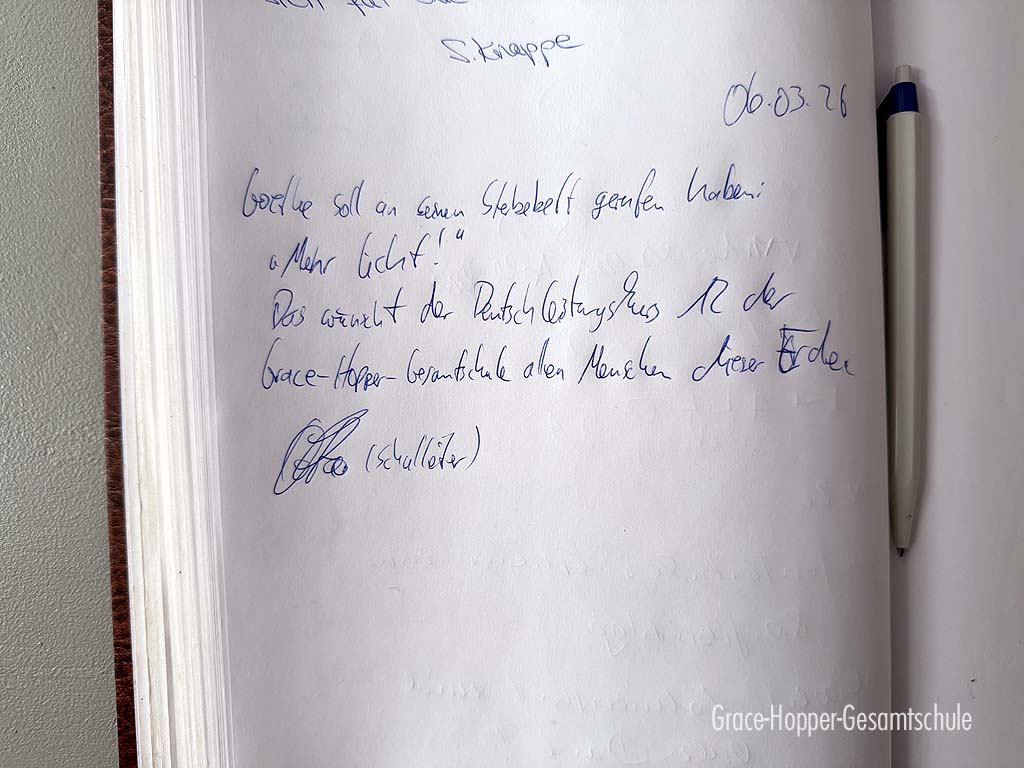 für Sie
S. Knappe
06.03.26
Goethe soll an seinem Sterbebett gerufen haben:
„Mehr Licht!“
Das wünscht der Deutschleistungskurs 12 der
Grace-Hopper-Gesamtschule allen Menschen dieser Erden
(Schulleiter)
Grace-Hopper-Gesamtschule